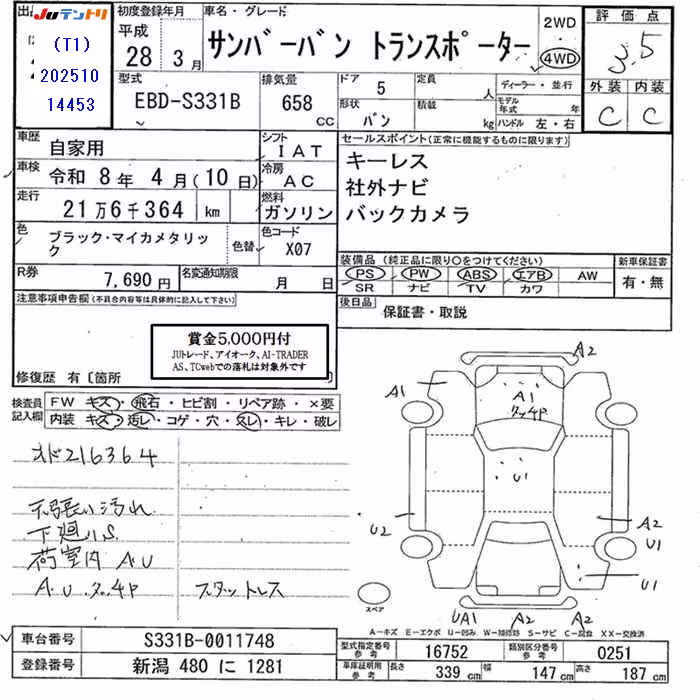 JUテントリ
(T1)
202510
14453
初度登録年月
平成
28 3月
車名・グレード
サンバーバン トランスポーター
2WD
4WD
評価点
3.5
型式
EBD-S331B
排気量
658 CC
ドア 5
形状 バン
定員 人
積載 kg
ディーラー・並行
モデル年式 年
ハンドル 左・右
外装 内装
C C
車歴 自家用
シフト IAT
車検 令和 8年 4月(10日)
冷房 AC
走行 21万6千364 km
燃料 ガソリン
色 ブラック・マイカメタリック
色替
色コード X07
R券 7,690円
名変通知期限 月 日
セールスポイント(正常に機能するものに限ります)
キーレス
社外ナビ
バックカメラ
装備品(純正品に限り○をつけてください)
新車保証書
PS PW ABS エアB AW
SR ナビ TV カワ
有・無
後日品 保証書・取説
注意事項申告欄(不具合内容等は具体的に記入して下さい)
賞金5,000円付
JUトレード、アイオーク、AI-TRADER
AS、TCwebでの落札は対象外です
修復歴 有〔箇所 〕
検査員記入欄
FW キズ・飛石・ヒビ割・リペア跡・×要
内装 キズ・汚レ・コゲ・穴・スレ・キレ・破レ
オド216364
天張い汚れ
下廻りS
荷室内 A.U
A.U タッチP
スタットレス
A2
A1
A1
タッチP
U1
U2
A2
U1
U1
UA1 A2 A2
スペア
A-キズ E-エクボ U-凹み W-補修跡 S-サビ C-腐食 XX-交換済
車台番号 S331B-0011748
型式指定番号 参考 16752
類別区分番号 参考 0251
登録番号 新潟 480 に 1281
車庫証明用 参考
長さ 339 cm
幅 147 cm
高さ 187 cm